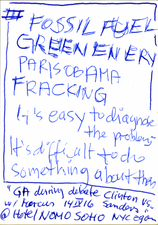 # FOSSIL FUEL
GREEN ENERY
PARIS OBAMA
FRACKING
It's easy to diagnose
the problem
It's difficult to do
something about them
"GA during debate Clinton vs.
w/ Marcus 14 IV 16 Sanders"
@ Hotel NOMO SOHO NYC